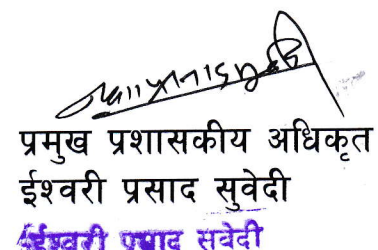 प्रमुख प्रशासकीय अधिकृत
ईश्वरी प्रसाद सुवेदी
ईश्वरी प्रसाद सुवेदी